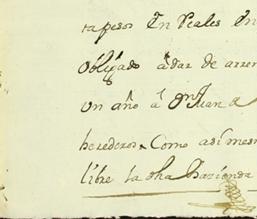 ta pesos En Reales En
obligado adar de arren
un año á Dn Juan
herederos Como asi mes
libre la dha Hazienda